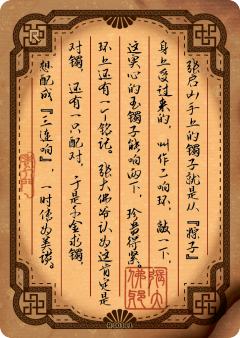 张启山手上的镯子就是从『粽子』
身上受过来的，叫作二响环，敲一下，
这实心的玉镯子能响两下，珍贵得紧。
环上还有一个铭记。张大佛爷认为这肯定是
对镯，还有一只配对，于是千金求镯，
想配成『三连响』，一时传为美谈。
张大
佛爷